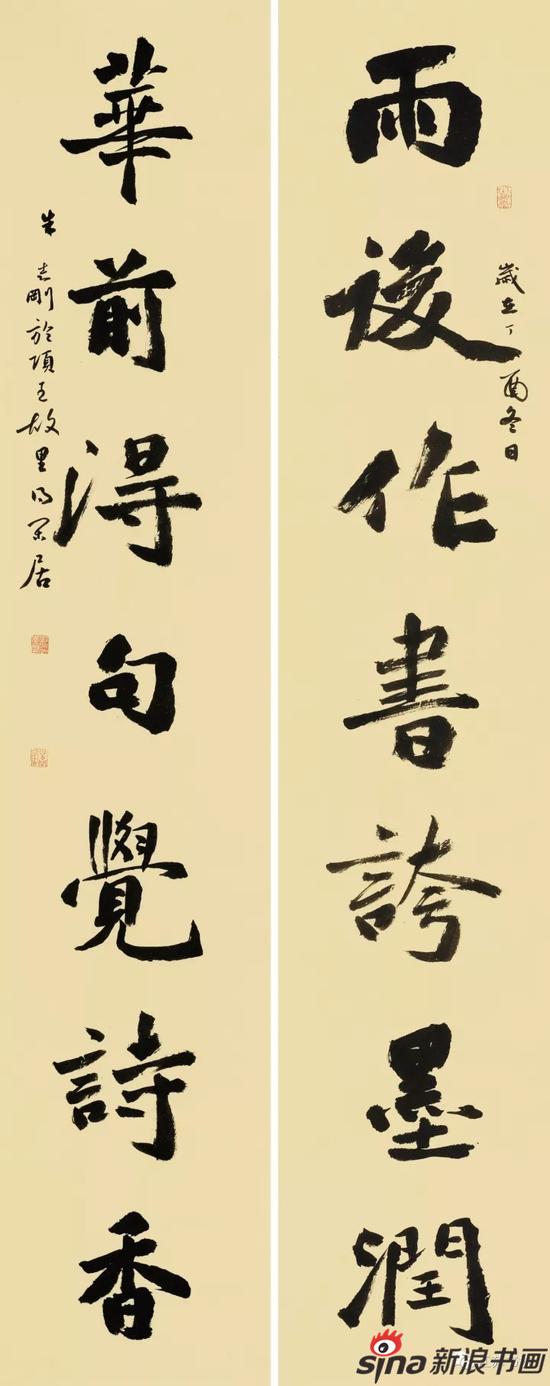 雨後作書誇墨潤
歲在丁酉冬日
華前得句覺詩香
朱志剛於項王故里居
sina新浪书画